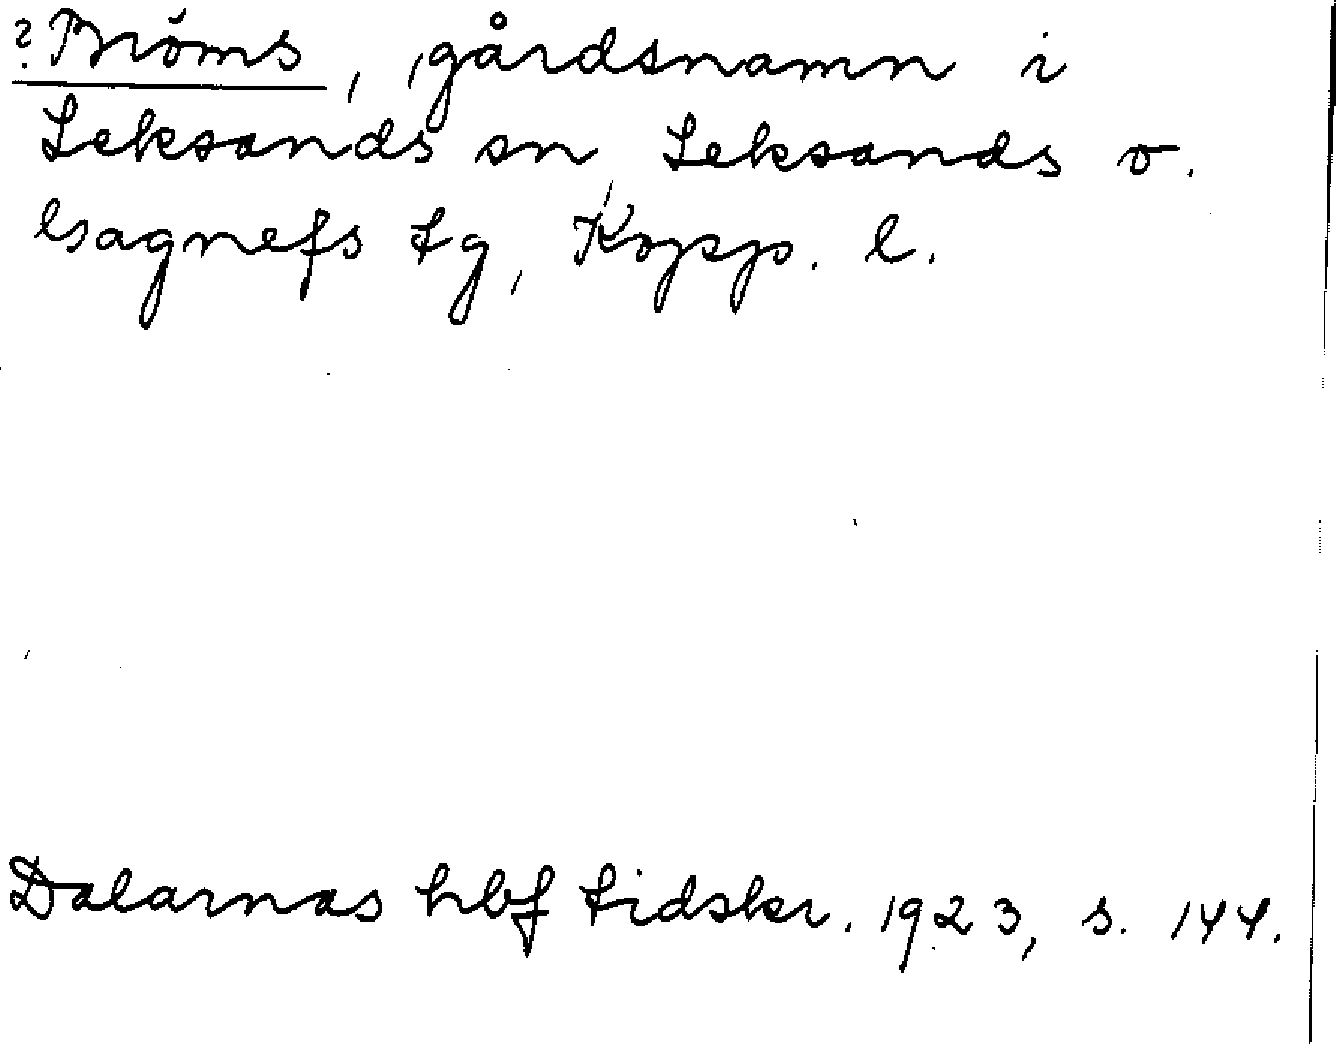 ? Bröms, gårdsnamn i
Leksands sn, Leksands o.
Gagnefs tg, Kopp. l.
Dalarnas hbf tidskr. 1923, s. 144.